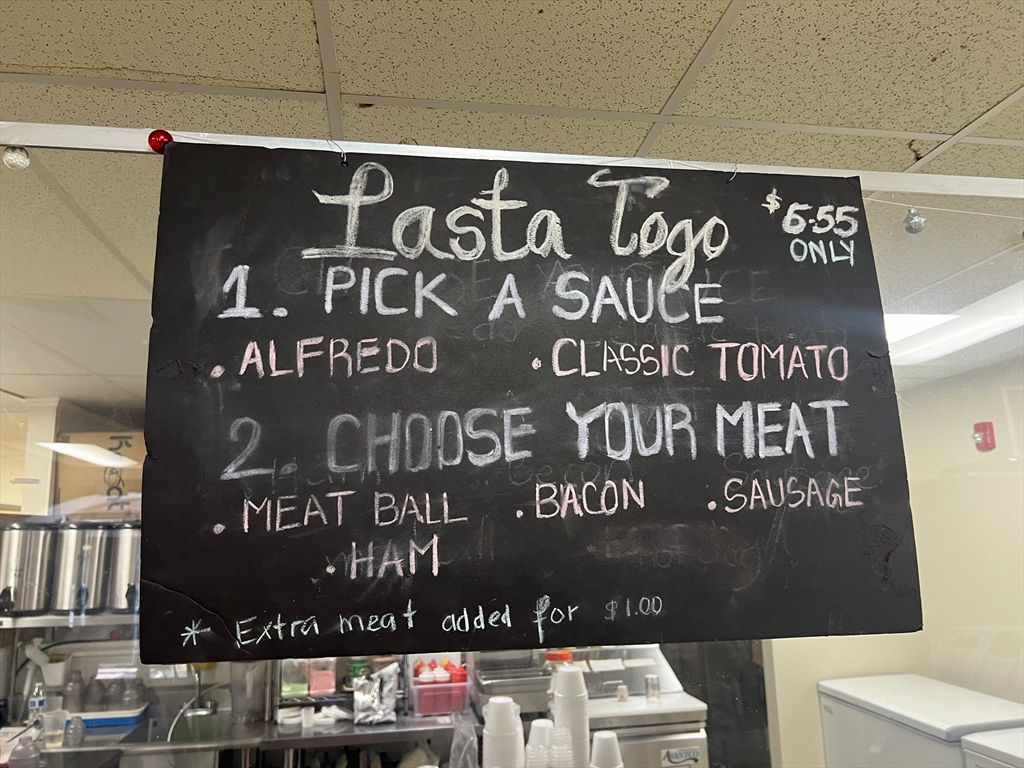 Pasta Togo
$6.55
ONLY
1. PICK A SAUCE
. ALFREDO . CLASSIC TOMATO
2. CHOOSE YOUR MEAT
. MEAT BALL . BACON . SAUSAGE
. HAM
* Extra meat added for $1.00